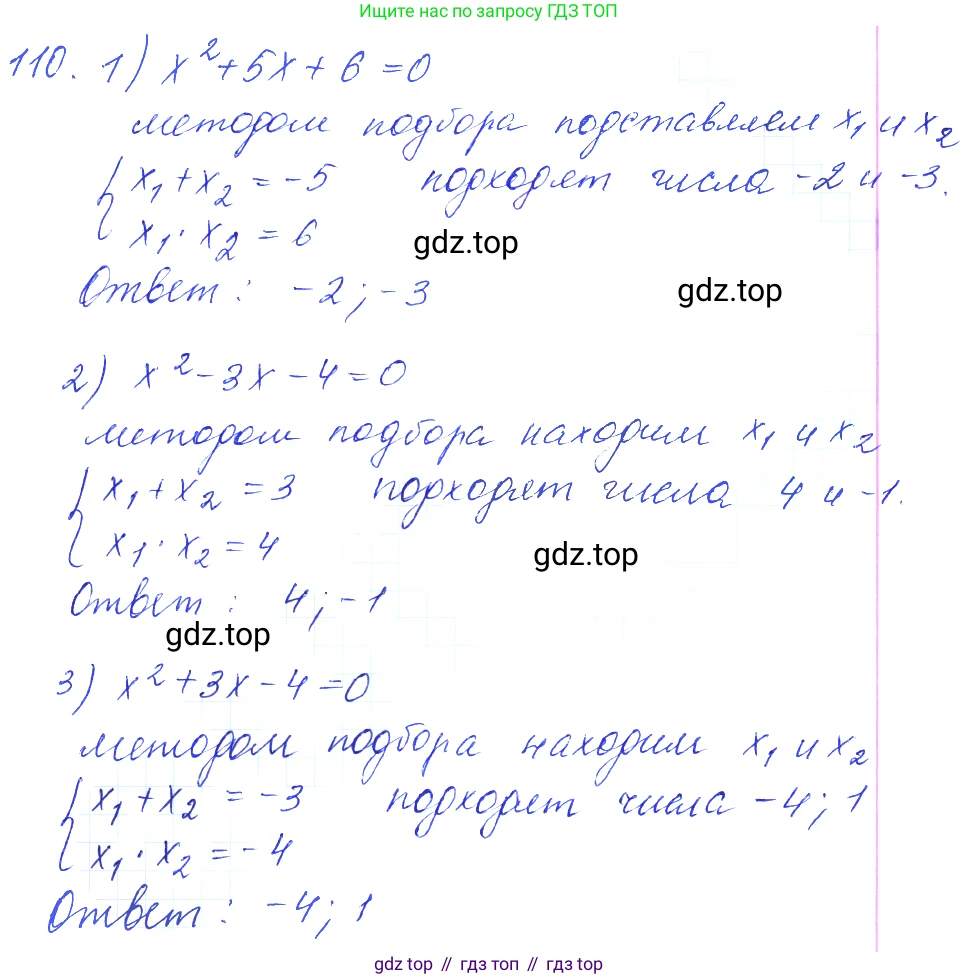 Ищите нас по запросу ГДЗ ТОП
110. 1) x²+5x+6=0
методом подбора подставляем x₁ и x₂
{ x₁+x₂=-5 подходят числа -2 и -3.
x₁·x₂=6
gdz.top
Ответ: -2;-3
gdz.top
2) x²-3x-4=0
методом подбора находим x₁ и x₂
{ x₁+x₂=3 подходят числа 4 и -1.
x₁·x₂=4
gdz.top
Ответ: 4;-1
gdz.top
3) x²+3x-4=0
методом подбора находим x₁ и x₂
{ x₁+x₂=-3 подходят числа -4; 1
x₁·x₂=-4
Ответ: -4; 1
gdz.top // гдз топ // гдз.top